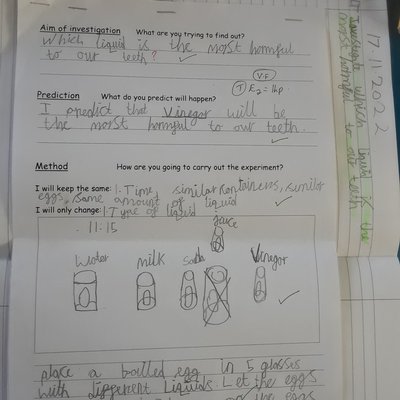 Aim of investigation What are you trying to find out?
Which liquid is the most harmful
to our teeth?
VF
T
Prediction What do you predict will happen?
I predict that Vinegar will be
the most harmful to our teeth.
Method How are you going to carry out the experiment?
I will keep the same: 1. Time, similar containers, similar
eggs, same amount of liquid
I will only change: 1. Type of liquid
11:15
juice
Water milk soda Vinegar
place a boiled egg in 5 glasses
with different liquids. Let the eggs
the eggs
17.11.2022
investigate which liquid is the
most harmful to our teeth